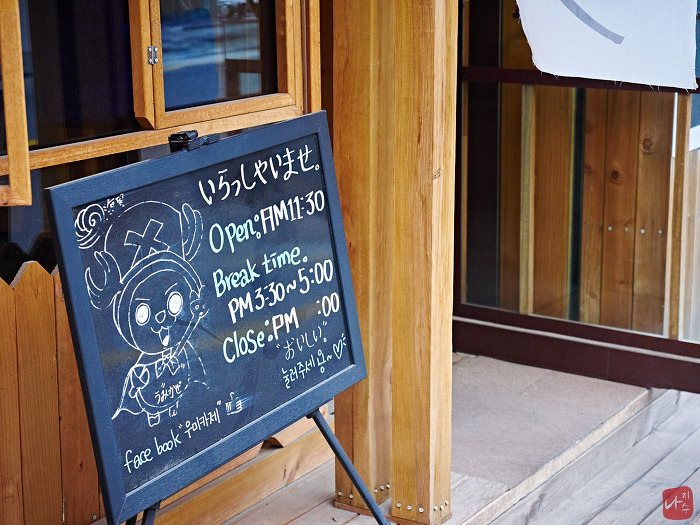 いらっしゃいませ。
Open: AM 11:30
Break time.
PM 3:30~5:00
Close: PM :00
"おいしい"
눌러주세용~♡
우미카제
face book "우미카제"
나
지수